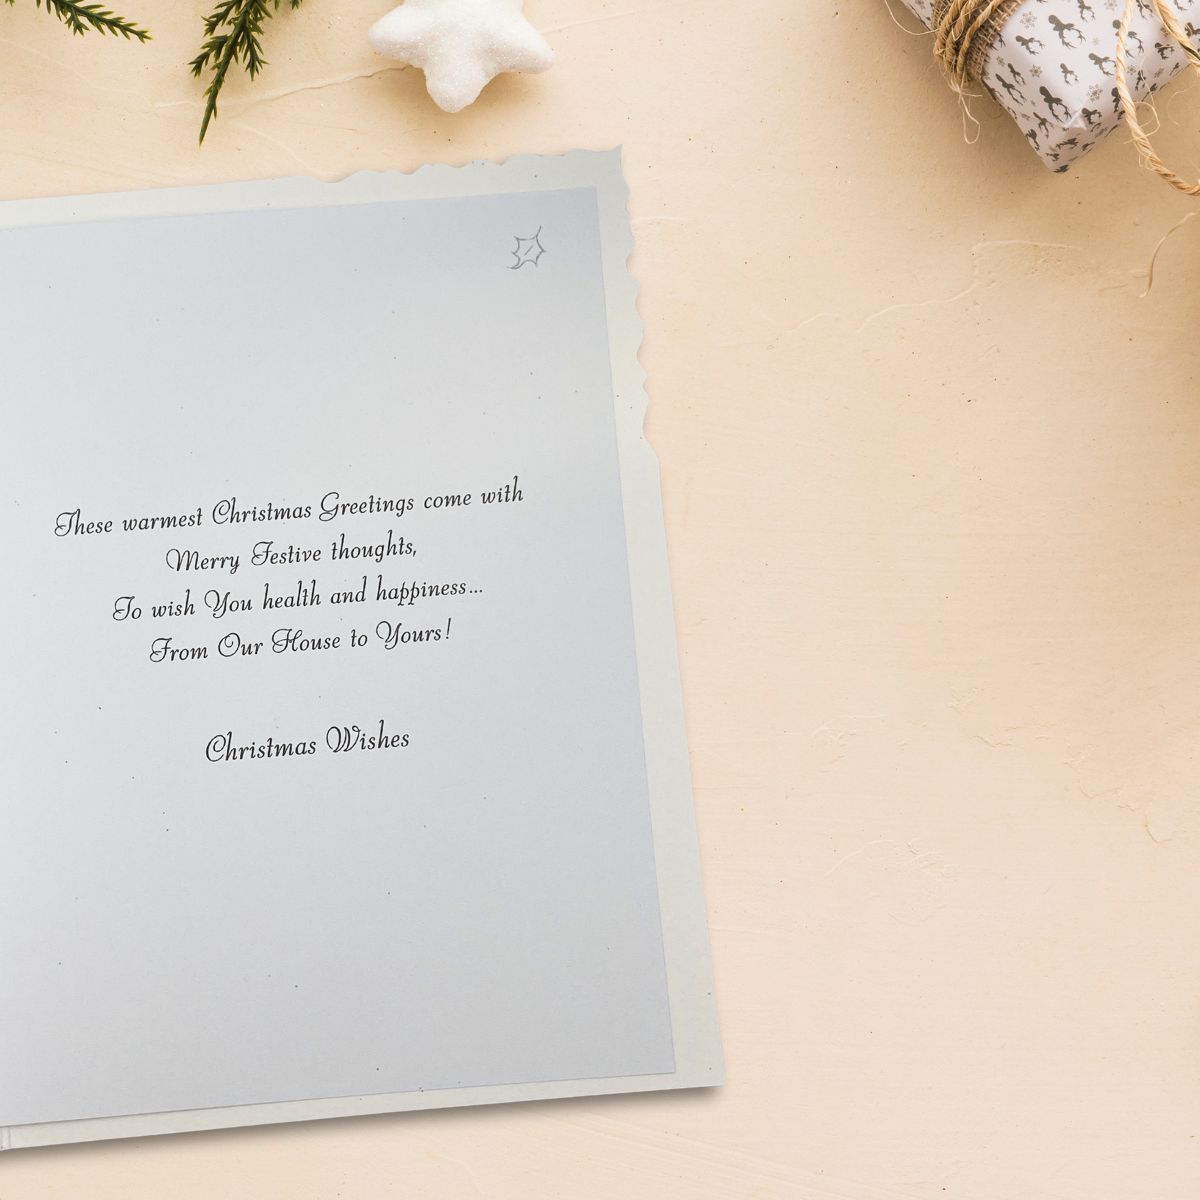 These warmest Christmas Greetings come with
Merry Festive thoughts,
To wish You health and happiness...
From Our House to Yours!
Christmas Wishes